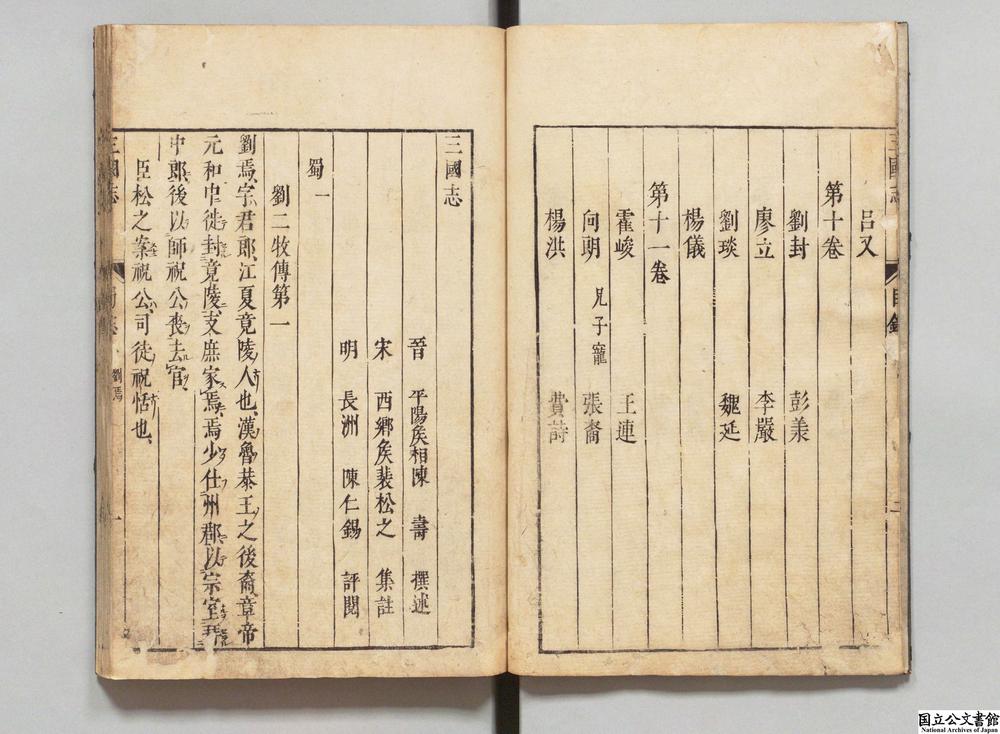 三國志 目錄 二
呂乂
第十卷
劉封 彭羕
廖立 李嚴
劉琰 魏延
楊儀
第十一卷
霍峻 王連
向朗 兄子寵 張裔
楊洪 費詩
三國志
晉 平陽矦相陳 壽 撰述
宋 西鄉矦裴松之 集註
明 長洲 陳仁錫 評閱
蜀一
劉二牧傳第一
劉焉字君郎江夏竟陵人也漢魯恭王之後裔章帝
元和中徙封竟陵支庶家焉焉少仕州郡以宗室拜
中郎後以師祝公喪去官
臣松之案祝公司徒祝恬也
三國志 蜀志 劉焉 一
国立公文書館
National Archives of Japan